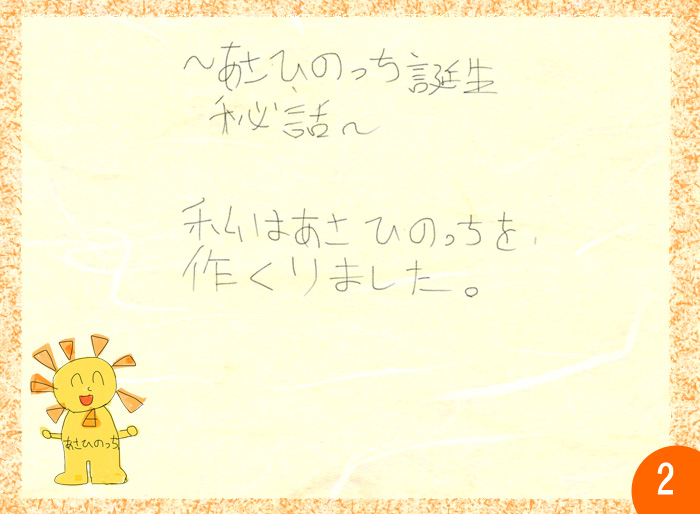 ～あさひのっち誕生
秘話～
私はあさひのっちを、
作くりました。
あさひのっち
2